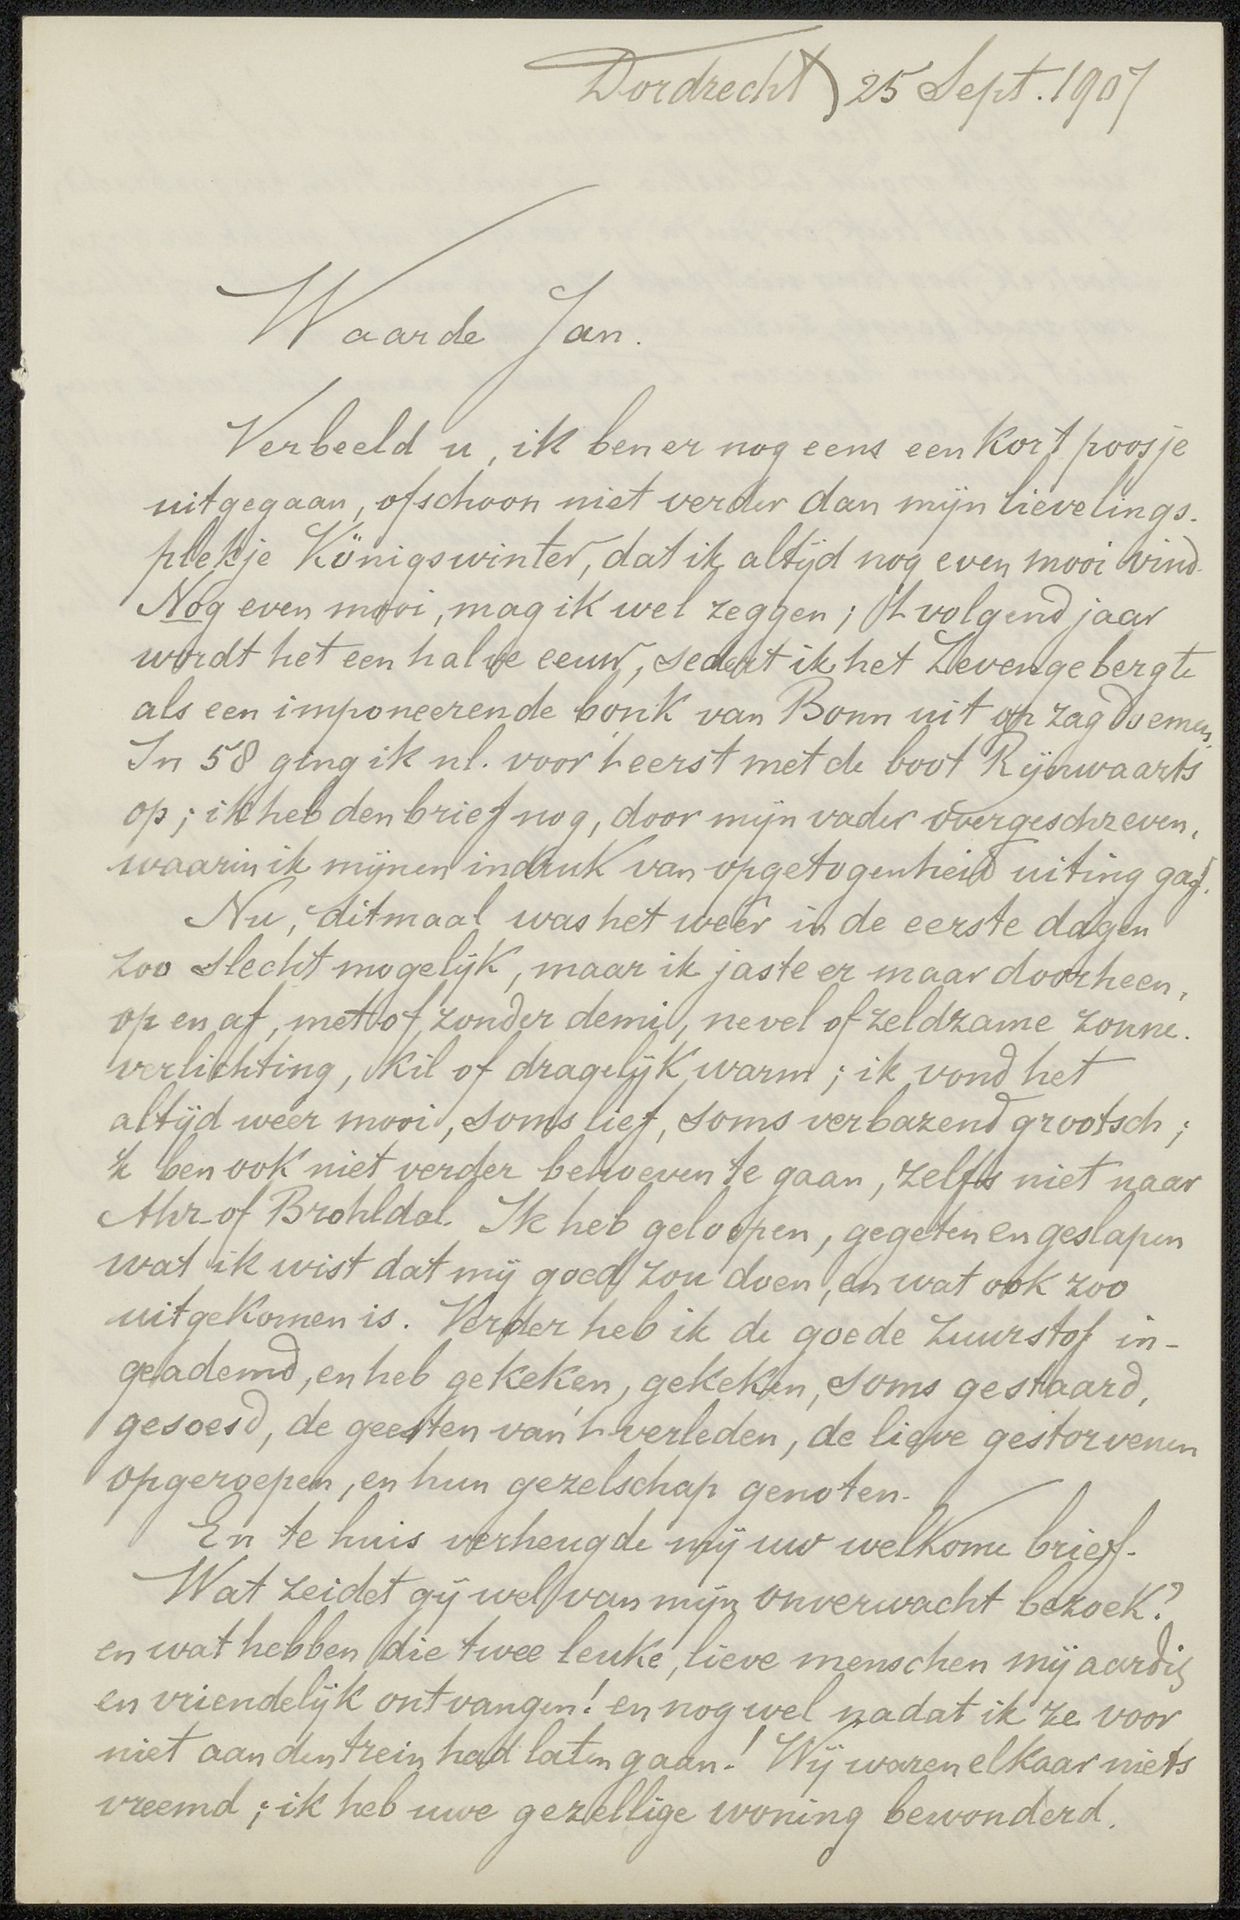 Dordrecht, 25 Sept. 1907
Waarde Jan.
Verbeeld u, ik ben er nog eens een kort poosje
uitgegaan, ofschoon niet verder dan mijn lievelings-
plekje Königswinter, dat ik altijd nog even mooi vind.
Nog even mooi, mag ik wel zeggen; 't volgend jaar
wordt het een halve eeuw, sedert ik het Zevengebergte
als een imponeerende bonk van Bonn uit op zag doemen.
In 58 ging ik nl. voor 't eerst met de boot Rijnwaarts
op; ik heb den brief nog, door mijn vader overgeschreven,
waarin ik mijnen indruk van opgetogenheid uiting gaf.
Nu, ditmaal was het weêr in de eerste dagen
zoo slecht mogelijk, maar ik jaste er maar doorheen,
op en af, met of zonder demi, nevel of zeldzame zonne-
verlichting, kil of dragelijk warm; ik vond het
altijd weer mooi, soms lief, soms verbazend grootsch;
'k ben ook niet verder behoeven te gaan, zelfs niet naar
Ahr- of Brohldal. Ik heb geloopen, gegeten en geslapen
wat ik wist dat mij goed zou doen, en wat ook zoo
uitgekomen is. Verder heb ik de goede zuurstof in-
geademd, en heb gekeken, gekeken, soms gestaard,
gesoesd, de geesten van 't verleden, de lieve gestorvenen
opgeroepen, en hun gezelschap genoten.
En te huis verheugde mij uw welkome brief.
Wat zeidet gij wel van mijn onverwacht bezoek?
en wat hebben die twee leuke, lieve menschen mij aardig
en vriendelijk ontvangen! en nog wel nadat ik ze voor
niet aan den trein had laten gaan! Wij waren elkaar niets
vreemd; ik heb uwe gezellige woning bewonderd.